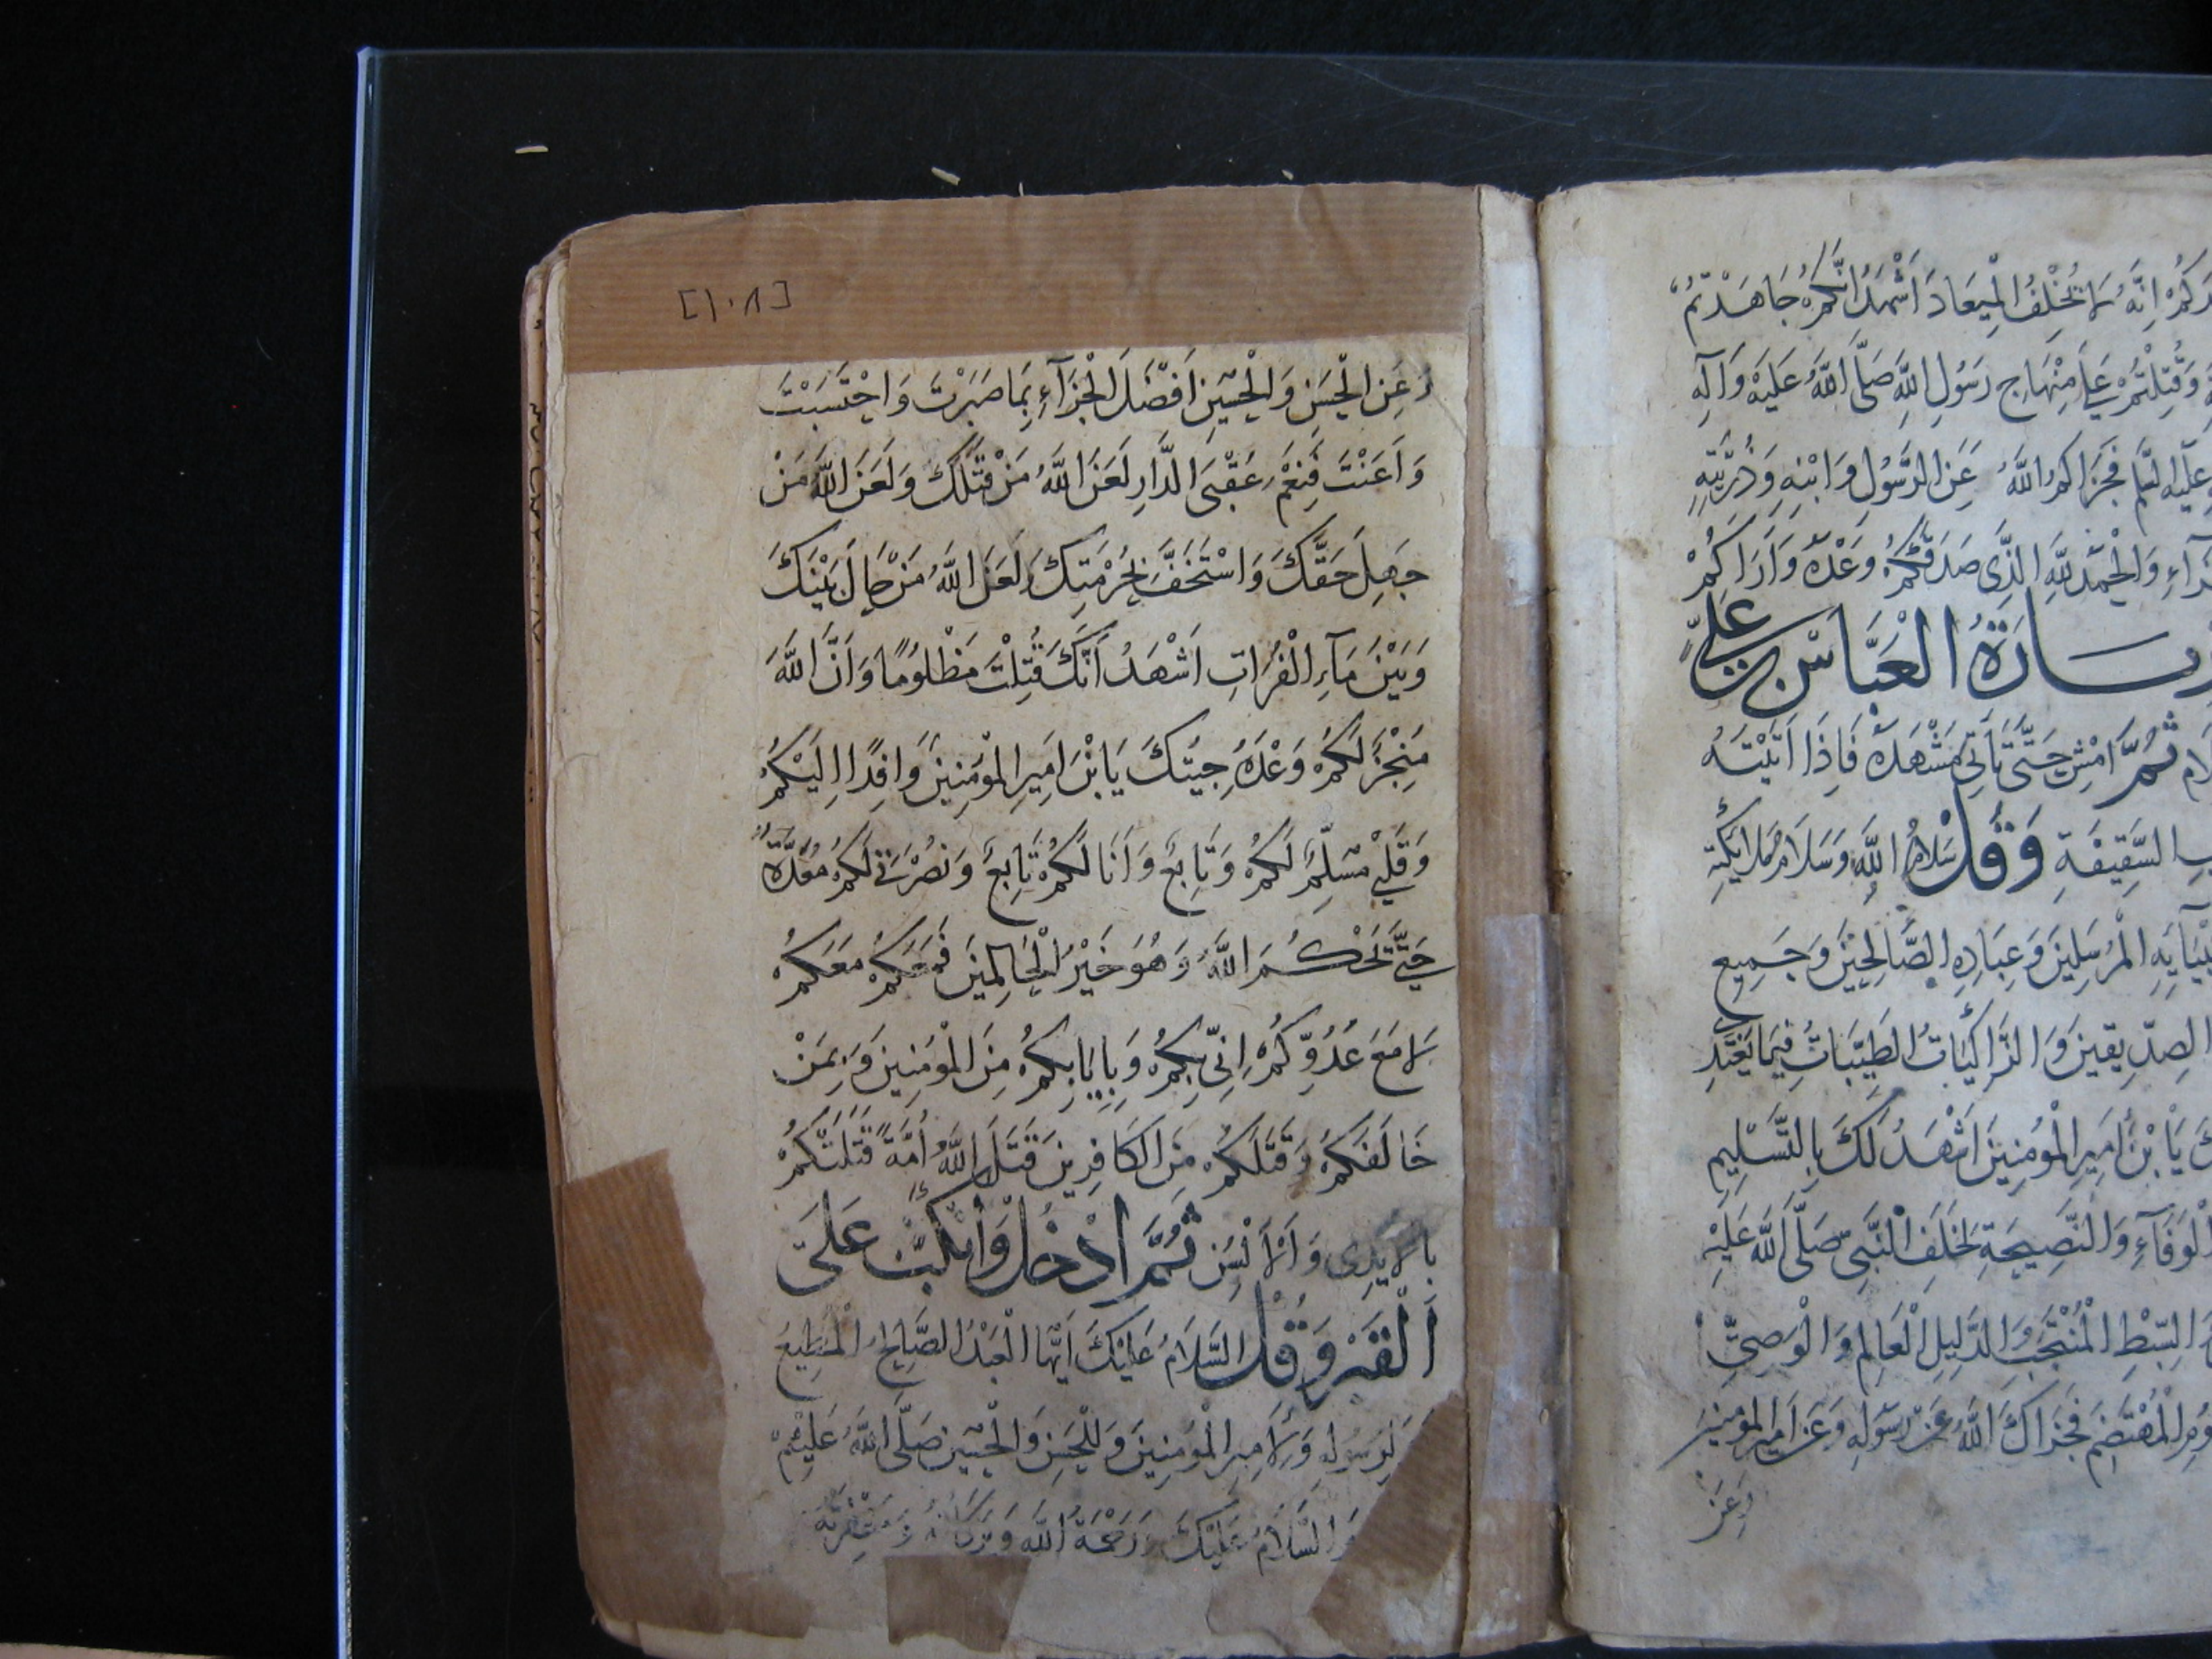 دَكُمْ اِنَّهُ لَا يُخْلِفُ الْمِيعَادَ اَشْهَدُ اَنَّكُمْ جَاهَدْتُمْ
وَقُتِلْتُمْ عَلَى مِنْهَاجِ رَسُولِ اللَّهِ صَلَّى اللَّهُ عَلَيْهِ وَآلِهِ
عَلَيْهِ السَّلَم فَجَزَاكُمُ اللَّهُ عَنِ الرَّسُولِ وَابْنِهِ وَذُرِّيَّتِهِ
وَالْحَمْدُ لِلَّهِ الَّذِى صَدَقَكُمْ وَعْدَهُ وَاَرَاكُمْ
زيارَةُ الْعَبَّاسْ بن عَلِيٍّ
ثُمَّ امْشِ حَتَّى تَأْتِيَ مَشْهَدَهُ فَاِذَا اَتَيْتَهُ
السَّقِيفَةِ وَقُلْ سَلَامُ اللَّهِ وَسَلَامُ مَلَائِكَتِهِ
الْمُرْسَلِينَ وَعِبَادِهِ الصَّالِحِينَ وَجَمِيعِ
الصِّدِّيقِينَ وَالزَّاكِيَاتُ الطَّيِّبَاتُ فِيمَا تَغْتَدِي
يَا بْنَ اَمِيرِ الْمُؤْمِنِينَ اَشْهَدُ لَكَ بِالتَّسْلِيمِ
الْوَفَآءِ وَالنَّصِيحَةِ لِخَلَفِ النَّبِيِّ صَلَّى اللَّهُ عَلَيْهِ
السِّبْطِ الْمُنْتَجَبِ وَالدَّلِيلِ الْعَالِمِ وَالْوَصِيِّ
الْمُهْتَضَمِ فَجَزَاكَ اللَّهُ عَنْ رَسُولِهِ وَعَنْ اَمِيرِ الْمُؤْمِنِينَ
وَعَنِ
[١٠٨]
وَعَنِ الْحَسَنِ وَالْحُسَيْنِ اَفْضَلَ الْجَزَآءِ بِمَا صَبَرْتَ وَاحْتَسَبْتَ
وَاَعَنْتَ فَنِعْمَ عُقْبَى الدَّارِ لَعَنَ اللَّهُ مَنْ قَتَلَكَ وَلَعَنَ اللَّهُ مَنْ
جَهِلَ حَقَّكَ وَاسْتَخَفَّ بِحُرْمَتِكَ وَلَعَنَ اللَّهُ مَنْ حَالَ بَيْنَكَ
وَبَيْنَ مَآءِ الْفُرَاتِ اَشْهَدُ اَنَّكَ قُتِلْتَ مَظْلُومًا وَاَنَّ اللَّهَ
مُنْجِزٌ لَكُمْ وَعْدَهُ جِيتُكَ يَا بْنَ اَمِيرِ الْمُؤْمِنِينَ وَافِدًا اِلَيْكُمْ
وَقَلْبِي مُسَلِّمٌ لَكُمْ وَتَابِعٌ وَاَنَا لَكُمْ تَابِعٌ وَنُصْرَتِي لَكُمْ مُعَدَّةٌ
حَتَّى يَحْكُمَ اللَّهُ وَهُوَ خَيْرُ الْحَاكِمِينَ فَمَعَكُمْ مَعَكُمْ
لَا مَعَ عَدُوِّكُمْ اِنِّي بِكُمْ وَبِاِيَابِكُمْ مِنَ الْمُؤْمِنِينَ وَبِمَنْ
خَالَفَكُمْ وَقَتَلَكُمْ مِنَ الْكَافِرِينَ قَتَلَ اللَّهُ اُمَّةً قَتَلَتْكُمْ
بِالْاَيْدِى وَالْاَلْسُنِ ثُمَّ ادْخُلْ وَانْكَبَّ عَلَى
الْقَبْرِ وَقُلْ السَّلَامُ عَلَيْكَ اَيُّهَا الْعَبْدُ الصَّالِحُ الْمُطِيعُ
لِرَسُولِهِ وَلِاَمِيرِ الْمُؤْمِنِينَ وَلِلْحَسَنِ وَالْحُسَيْنِ صَلَّى اللَّهُ عَلَيْهِمْ
السَّلَامُ عَلَيْكَ وَرَحْمَةُ اللَّهِ وَبَرَكَاتُهُ وَمَغْفِرَتُهُ